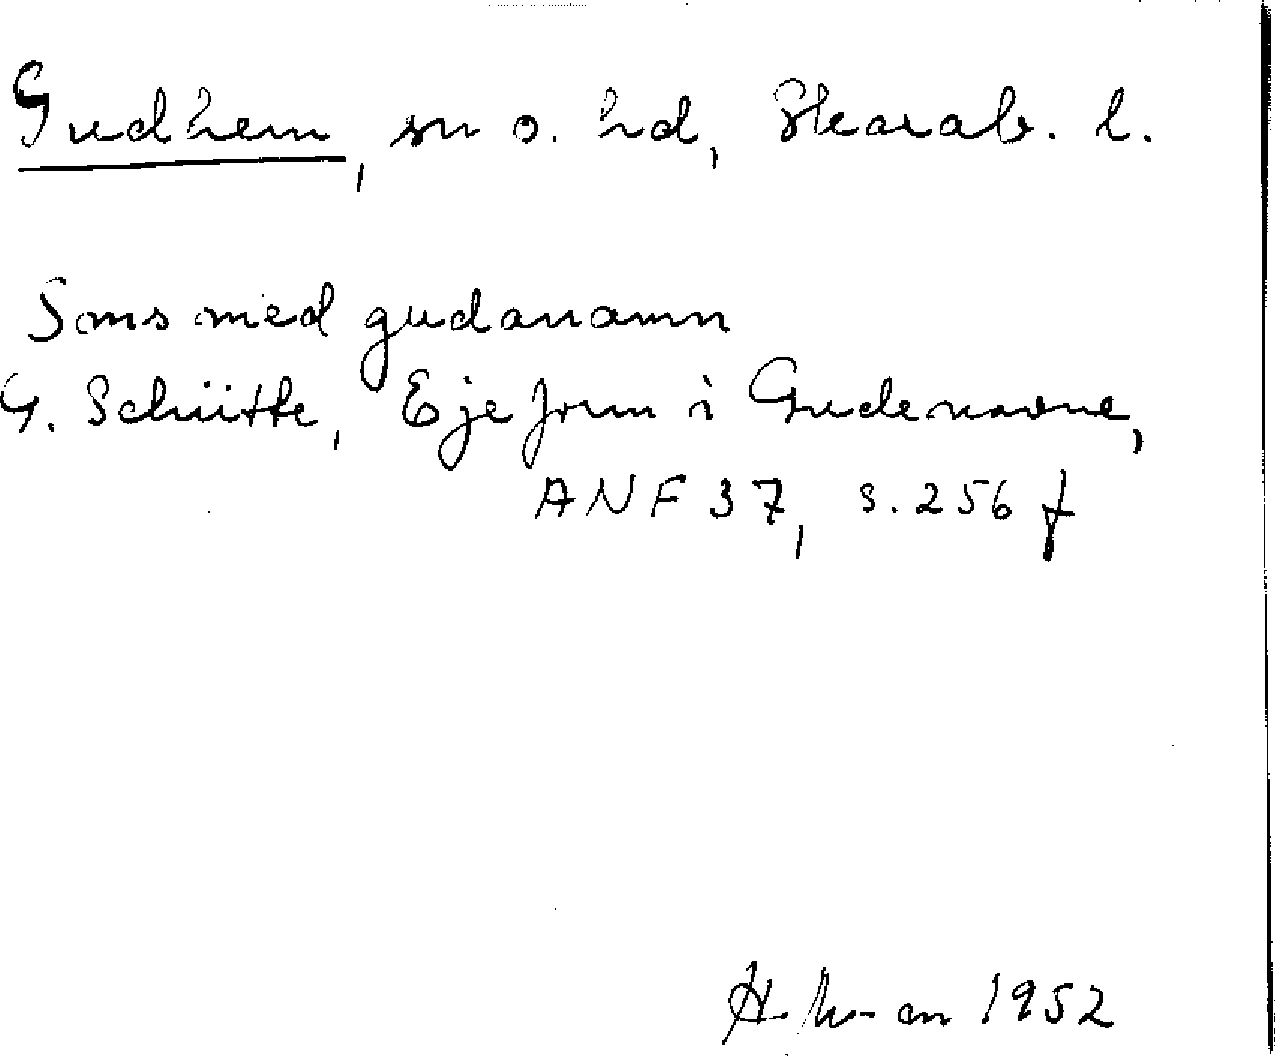 Gudhem, sn o. hd, Skarab. l.
Sms med gudanamn
G. Schütte, Eje form i Gudenavne,
ANF 37, s. 256 f
1952